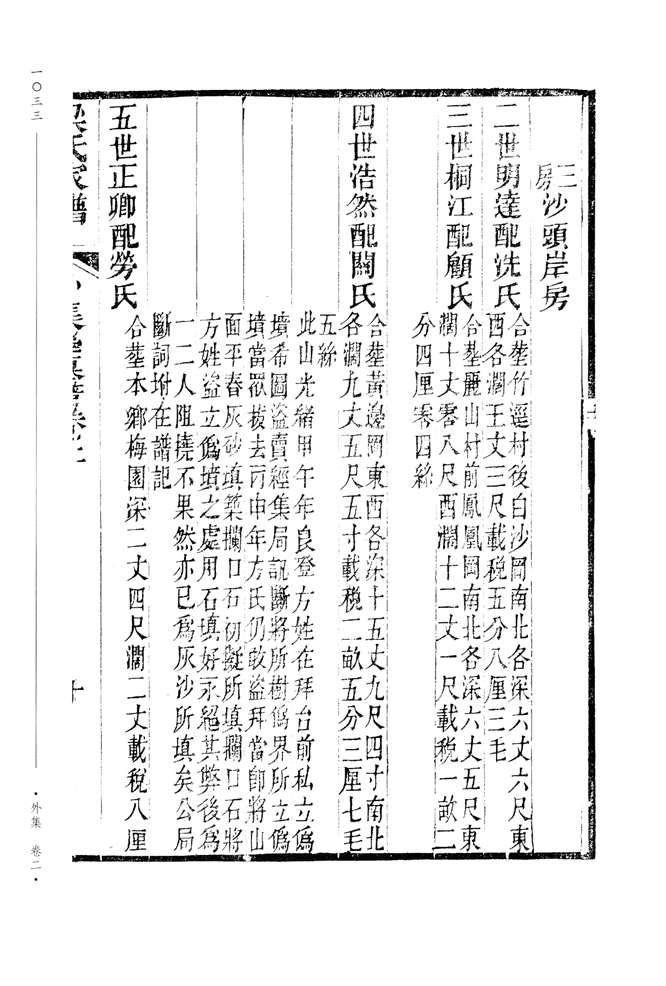 三房沙頭岸房
二世明達配洗氏
合塟竹逕村後白沙岡南北各深六丈六尺東
西各濶王丈三尺載税五分八厘三毛
三世桐江配顧氏
合塟麗山村前鳳凰岡南北各深六丈五尺東
濶十丈零八尺西濶十二丈一尺載税一畝二
分四厘零四絲
四世浩然配關氏
合塟黄邊岡東西各深十五丈九尺四寸南北
各濶九丈五尺五寸載税二畝五分三厘七毛
五絲
此山光緒甲午年良登方姓在拜台前私立僞
墳希圖盜賣經集局訊斷將所樹僞界所立僞
墳當眾拔去丙申年方氏仍敢盜拜當卽將山
面平舂灰砂填築攔口石初擬所填攔口石將
方姓盜立僞墳之處用石填好永絕其弊後爲
一二人阻撓不果然亦已爲灰沙所填矣公局
斷詞坿在譜記
五世正卿配勞氏
合塟本鄉梅園深二丈四尺濶二丈載税八厘
梁氏家譜
十
一〇三三
·外集 卷二·